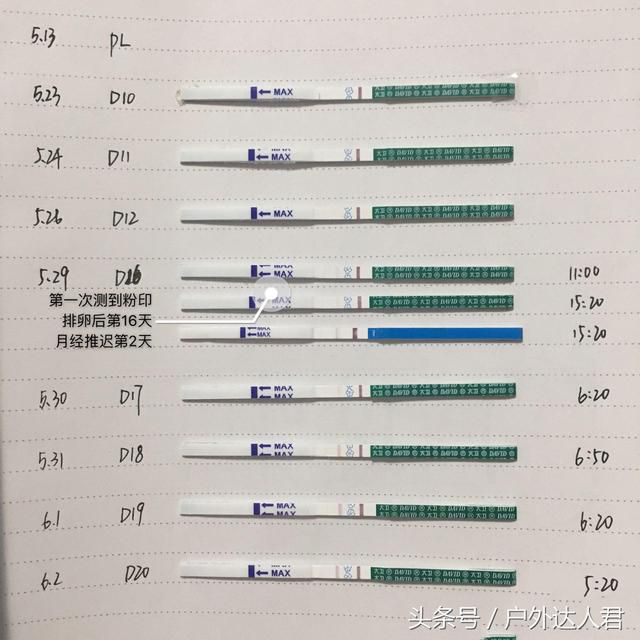 5.13 PL
5.23 D10 MAX 大卫 DAVID
5.24 D11 MAX 大卫 DAVID
5.26 D12 MAX 大卫 DAVID
5.29 D16 MAX 大卫 DAVID 11:00
第一次测到粉印 MAX 大卫 DAVID 15:20
排卵后第16天
月经推迟第2天 MAX 15:20
5.30 D17 MAX 大卫 DAVID 6:20
5.31 D18 MAX 大卫 DAVID 6:50
6.1 D19 MAX 大卫 DAVID 6:20
6.2 D20 MAX 大卫 DAVID 5:20
头条号/户外达人君